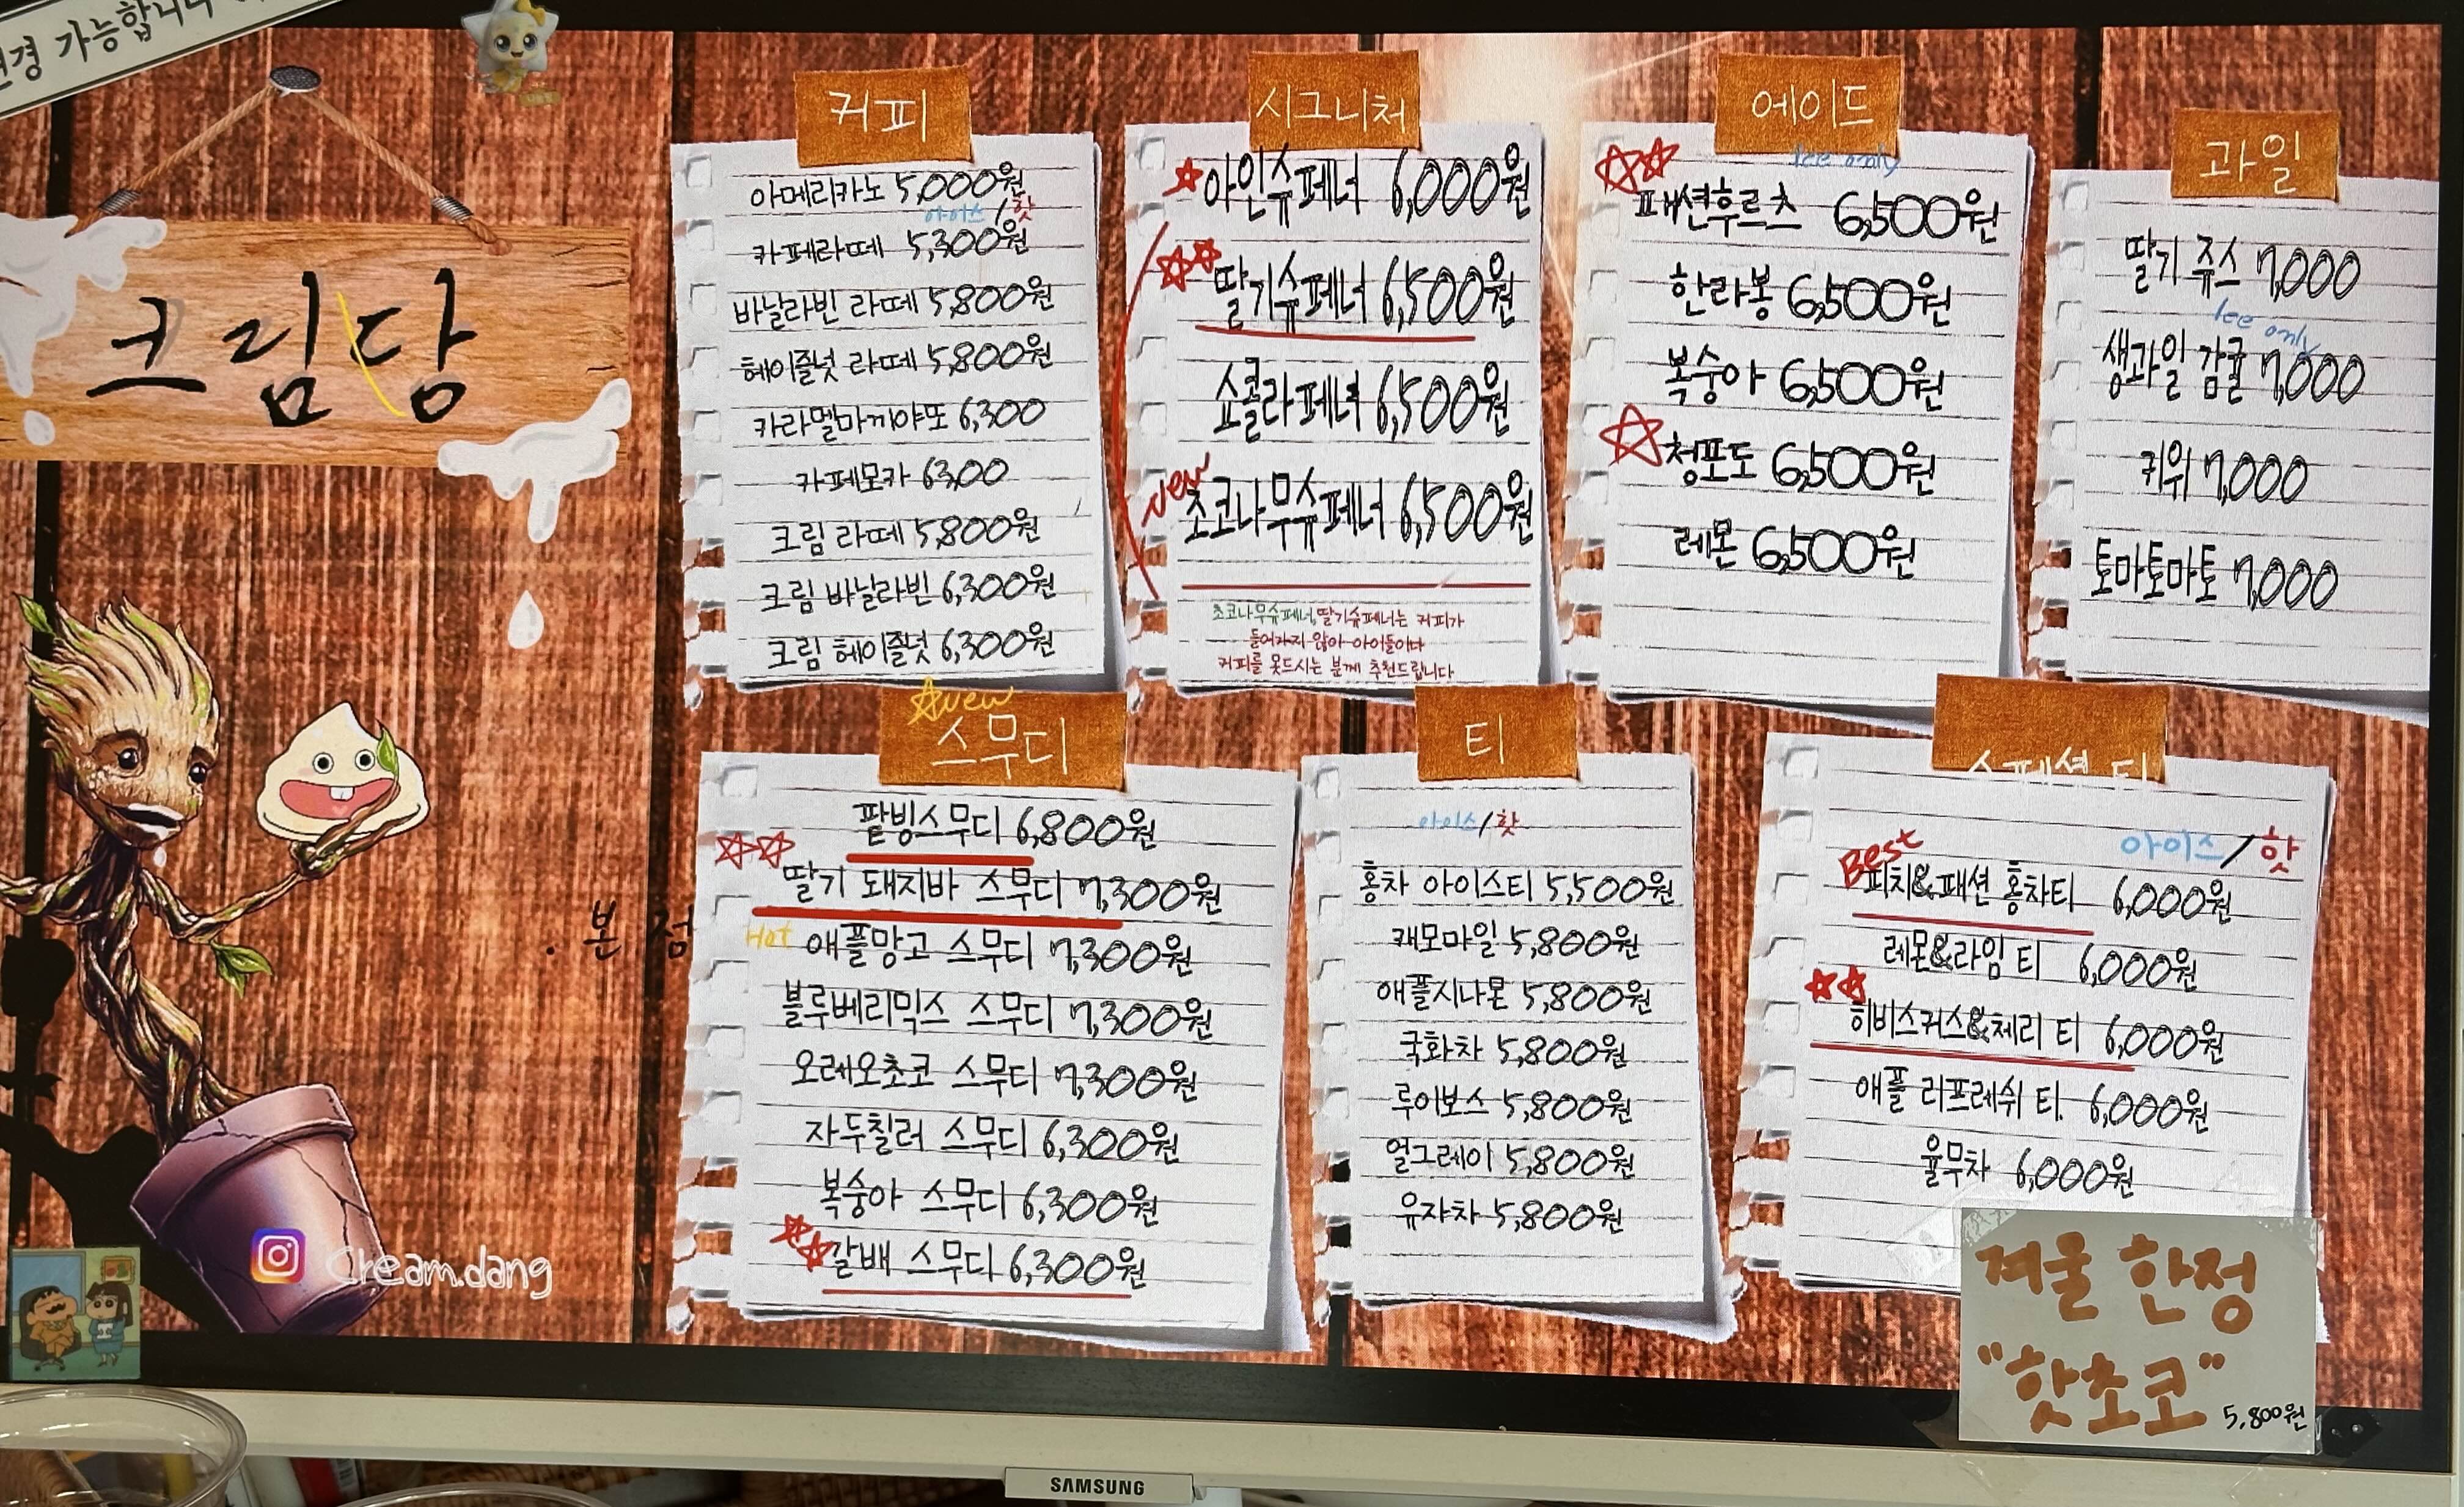 변경 가능합니다
크림당
커피
아메리카노 5,000원
아이스/핫
카페라떼 5,300원
바닐라빈 라떼 5,800원
헤이즐넛 라떼 5,800원
카라멜마끼야또 6,300
카페모카 6300
크림 라떼 5,800원
크림 바닐라빈 6,300원
크림 헤이즐넛 6,300원
시그니처
아인슈페너 6,000원
딸기슈페너 6,500원
쇼콜라페너 6,500원
New
초코나무슈페너 6,500원
초코나무슈페너,딸기슈페너는 커피가
들어가지 않아 아이들이나
커피를 못드시는 분께 추천드립니다
에이드
Ice only
패션후르츠 6,500원
한라봉 6,500원
복숭아 6,500원
청포도 6,500원
레몬 6,500원
과일
딸기 쥬스 7,000
Ice only
생과일 감귤 7,000
키위 7,000
토마토마토 7,000
new
스무디
팥빙스무디 6,800원
딸기 돼지바 스무디 7,300원
Hot
애플망고 스무디 7,300원
블루베리믹스 스무디 7,300원
오레오초코 스무디 7,300원
자두칠러 스무디 6,300원
복숭아 스무디 6,300원
갈배 스무디 6,300원
티
아이스/핫
홍차 아이스티 5,500원
캐모마일 5,800원
애플시나몬 5,800원
국화차 5,800원
루이보스 5,800원
얼그레이 5,800원
유자차 5,800원
스페셜 티
아이스/핫
Best
피치&패션 홍차티 6,000원
레몬&라임 티 6,000원
히비스커스&체리 티 6,000원
애플 리프레쉬 티. 6,000원
율무차 6,000원
. 본 점
Cream.dang
겨울 한정
"핫초코"
5,800원
SAMSUNG